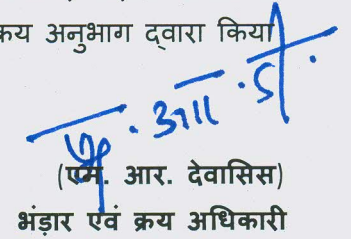 क्रय अनुभाग द्वारा किया
(एम. आर. देवासिस)
भंडार एवं क्रय अधिकारी